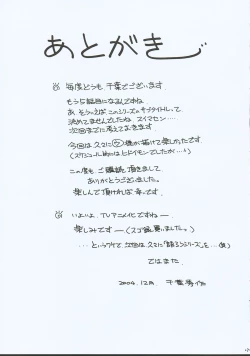 あとがき
毎度どうも、千葉でございます
もう5冊目になるんですね
あ、そういえばこのシリーズのサブタイトルって
決めてませんでしたね、スイマセン…
次回までに考えておきます
今回は久々に 様が描けて楽しかったです
(スケジュール的にはヒドイモンでしたが…)
この度も、ご購読頂きまして
ありがとうございました。
楽しんで頂ければ幸いです。
いよいよ、TVアニメ化ですねー
楽しみですー(スゴ録買いましたっ)
…というワケで、次回は久々に シリーズを…(爆)
ではまた
2004.12月. 千葉秀作